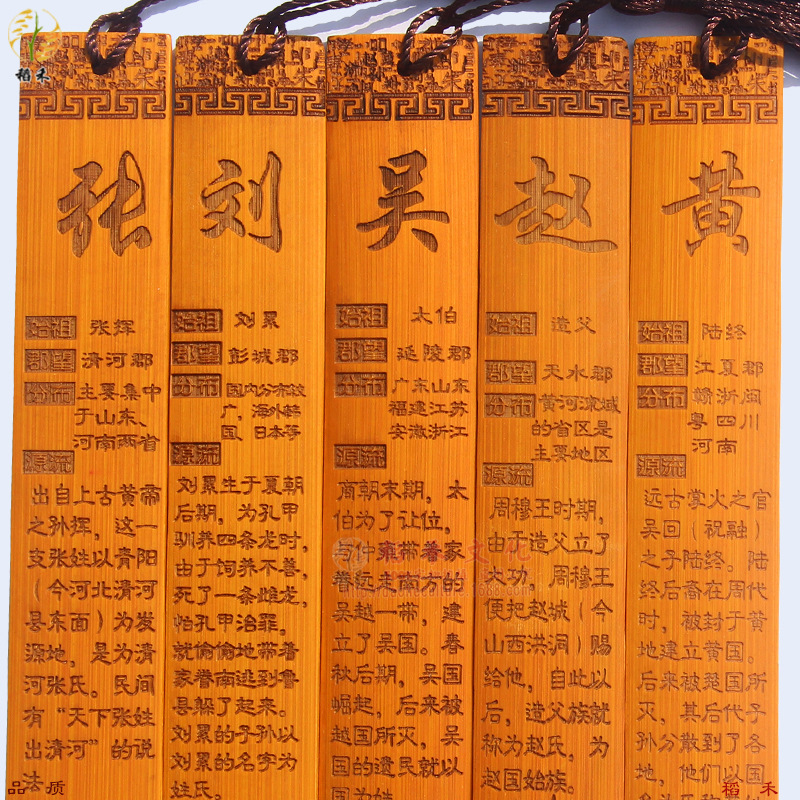 稻禾
张
始祖 张辉
郡望 清河郡
分布 主要集中
于山东、
河南两省
源流
出自上古黄帝
之孙挥，这一
支张姓以青阳
（今河北清河
县东面）为发
源地，是为清
河张氏。民间
有“天下张姓
出清河”的说
法
刘
始祖 刘累
郡望 彭城郡
分布 国内分布较
广，海外韩
国、日本等
源流
刘累生于夏朝
后期，为孔甲
驯养四条龙时，
由于饲养不善，
死了一条雌龙，
怕孔甲治罪，
就偷偷地带着
家眷南逃到鲁
县躲了起来。
刘累的子孙以
刘累的名字为
姓氏。
吴
始祖 太伯
郡望 延陵郡
分布 广东山东
福建江苏
安徽浙江
源流
商朝末期，太
伯为了让位，
与仲雍带着家
眷远走南方的
吴越一带，建
立了吴国。春
秋后期，吴国
崛起，后来被
越国所灭，吴
国的遗民就以
国为姓
赵
始祖 造父
郡望 天水郡
分布 黄河流域
的省区是
主要地区
源流
周穆王时期，
由于造父立了
大功，周穆王
便把赵城（今
山西洪洞）赐
给他，自此以
后，造父族就
称为赵氏，为
赵国始族。
黄
始祖 陆终
郡望 江夏郡
分布 赣浙闽
粤四川
河南
源流
远古掌火之官
吴回（祝融）
之子陆终。陆
终后裔在周代
时，被封于黄
地建立黄国。
后来被楚国所
灭，其后代子
孙分散到了各
地，他们以国
品质
稻禾